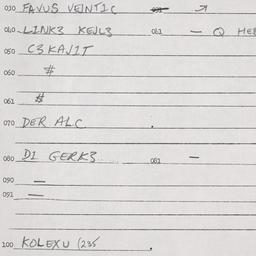 030 FAVUS VEJNTIC
040 LINK3 KEJL3 041 — Q HEB
050 C3KAJIT
060 #
061 #
070 DER ALC .
080 DI GERK3 081 —
090 —
091 —
100 KOLEXU (235 .